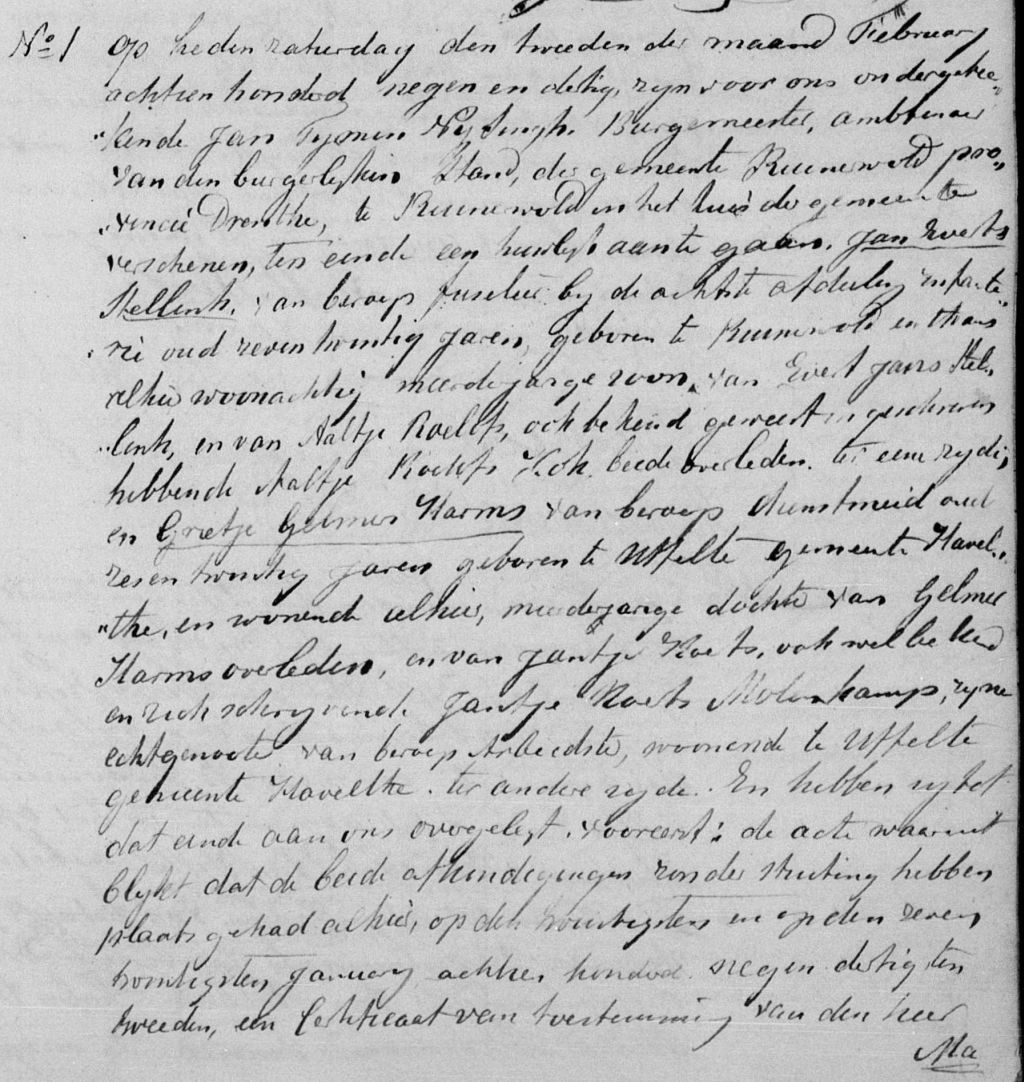 No 1 Op heden zaturdag den tweeden der maand Februarij
achtien honderd negen en dertig, zijn voor ons ondergetee„
„kende Jan Tijmen Nijsingh, Burgemeester, ambtenaar
van den burgerlijken Stand, der gemeente Ruinerwold pro„
„vincie Drenthe, te Ruinerwold in het huis der gemeente
verschenen, ten einde een huwlijk aan te gaan. Jan Everts
Stellink. van beroep fuselier bij de achtste afdeling infante„
„rie oud zeven twintig Jaren, geboren te Ruinerwold en thans
alhier woonachtig meerderjarige zoon, van Evert Jans Stel„
„link, en van Aaltje Roelefs, ook bekend geweest en geschreven
hebbende Aaltje Roelefs Kok. beide overleden. ter eene zijde,
en Grietje Gelmers Harms van beroep dienstmeid oud
zes en twintig Jaren geboren te Uffelte gemeente Havel„
„the, en wonende alhier, meerderjarige dochter van Gelmer
Harms overleden, en van Jantje Koerts, ook wel bekend
en zich schrijvende Jantje Koerts Molenkamp, zijne
echtgenoote van beroep Arbeidster, woonende te Uffelte
gemeente Havelthe. ter andere zijde. En hebben zij tot
dat einde aan ons overgelegt. vooreerst: de acte waaruit
blijkt dat de beide afkondigingen zonder stuiting hebben
plaats gehad alhier, op den twintigsten en op den zeven
twintigsten January achtien honderd negen dertig ten
tweeden, een Certificaat van toestemming van den heer
Ma